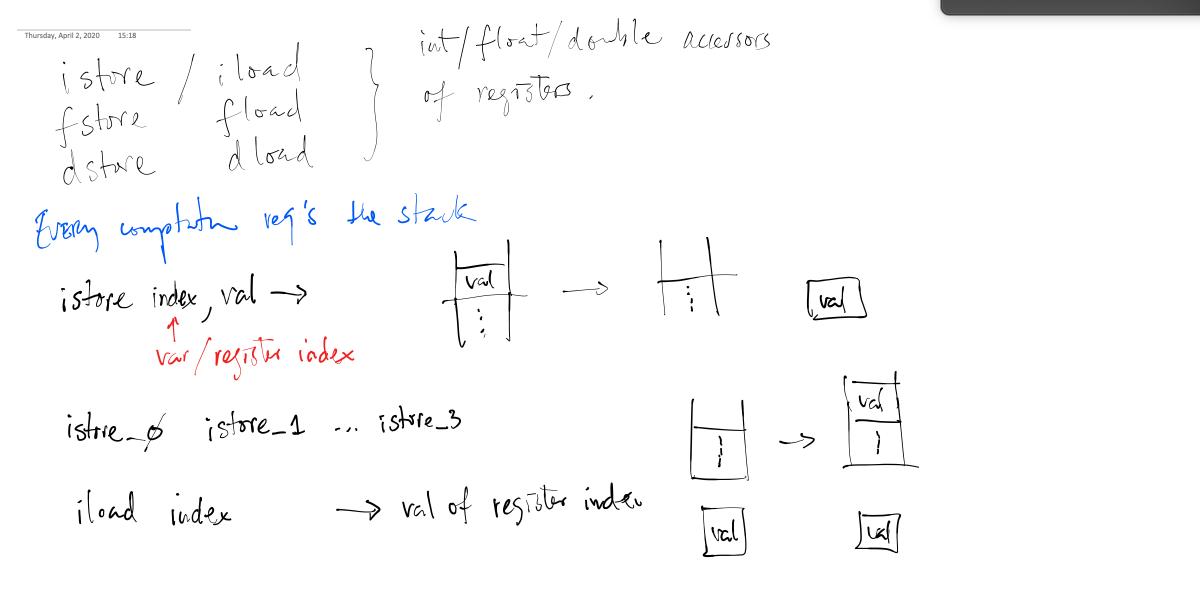 Thursday, April 2, 2020 15:18
istore / iload
fstore fload
dstore dload
int/float/double accessors
of registers.
EVERY computation req's the stack
istore index, val →
val
→
val
var/register index
istore_0 istore_1 ... istore_3
→
val
iload index → val of register index
val
val